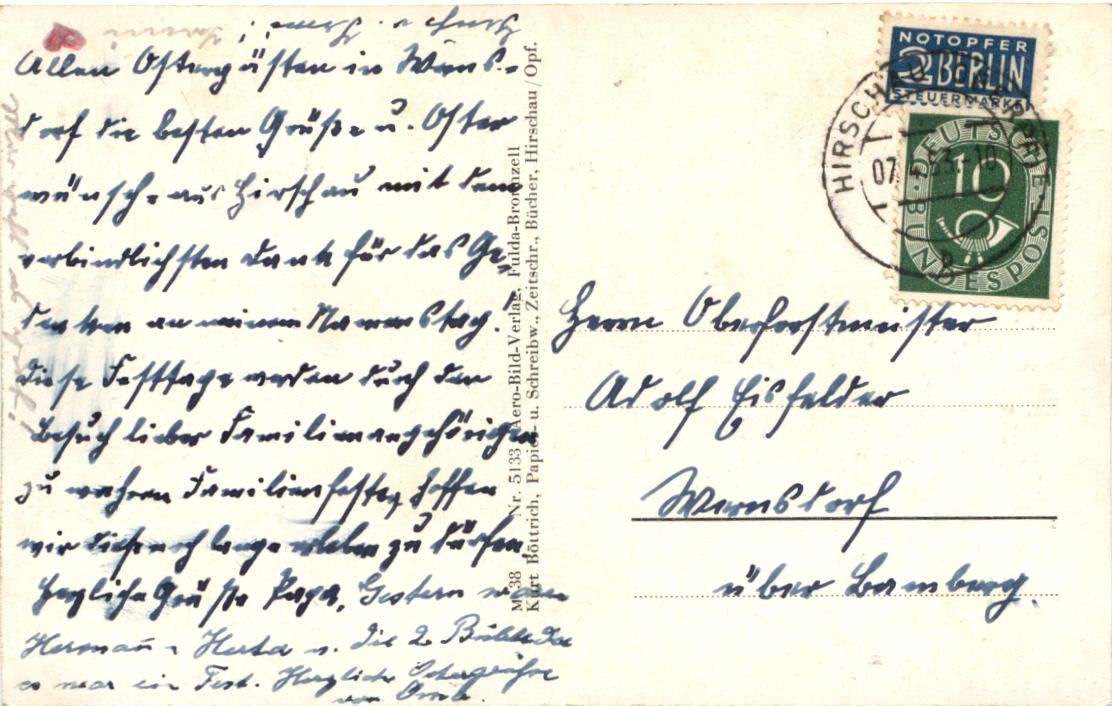 Allen Ostergästen in Werns-
dorf die besten Grüße u. Oster
wünsche aus Hirschau mit dem
verbindlichsten Dank für das Ge-
denken an meinem Namenstag.
Diese Festtage werden durch den
Besuch lieber Familienangehörigen
zu wahren Familienfesten, hoffen
wir diese noch lange erleben zu dürfen.
Herzliche Grüße Papa. Gestern waren
Hermann u. Herta u. die 2 da
es war ein Fest. Herzliche Ostergrüße
von
M 38 Nr. 5133 Aero-Bild-Verlag, Fulda-Bronnzell
Kurt Böttrich, Papier- u. Schreibw., Zeitschr., Bücher, Hirschau/Opf.
NOTOPFER
2 BERLIN
STEUERMARKE
HIRSCHAU
07.4.53.-10
B
DEUTSCHE
BUNDESPOST
10
Herrn Oberforstmeister
Adolf Eisfelder
Wernsdorf
über Bamberg.